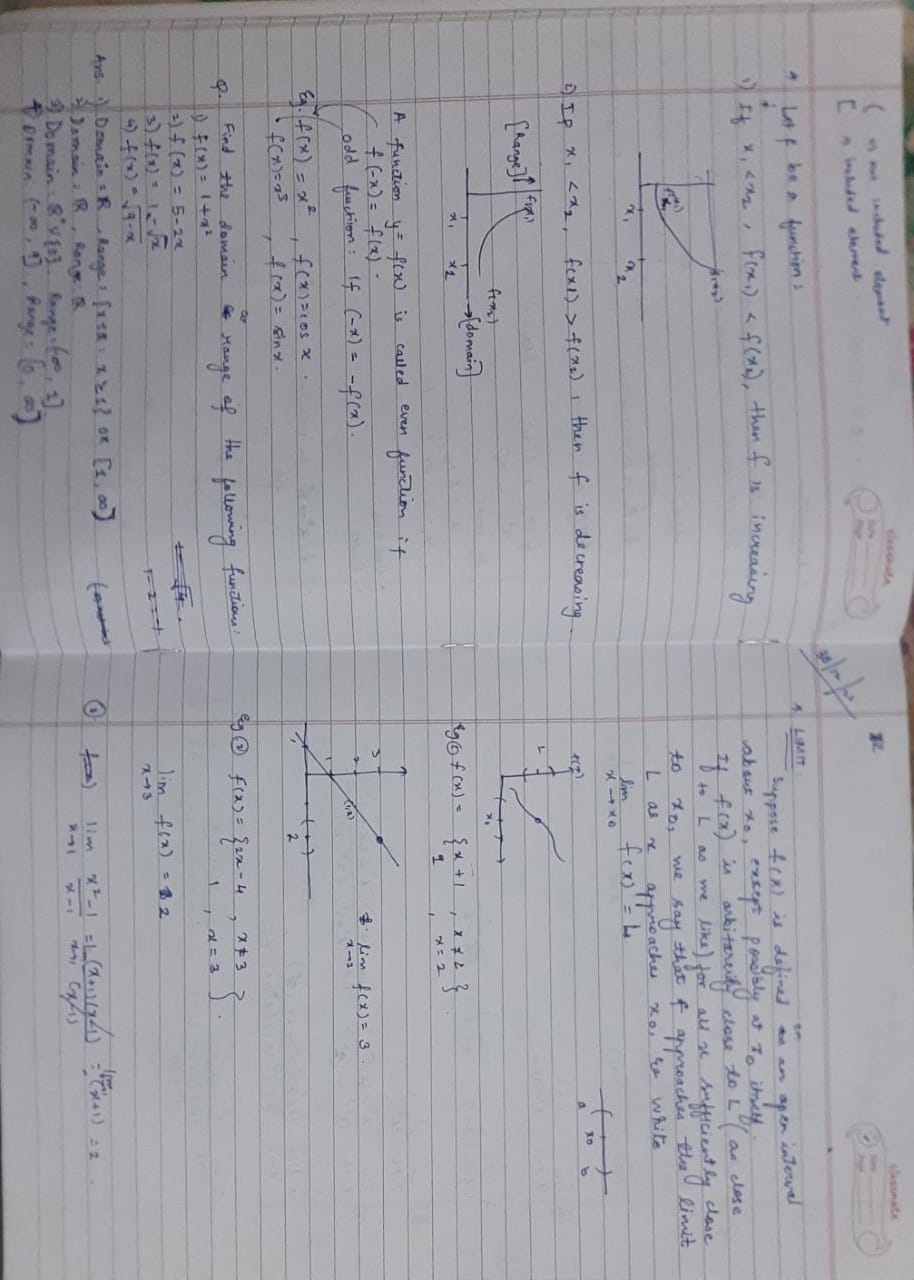 ( => not included element
[ => included element
classmate
Date
Page
* Let f be a function:
1) If x₁ < x₂ , f(x₁) < f(x₂), then f is increasing
f(x₂)
f(x₁)
x₁ x₂
2) If x₁ < x₂, f(x1) > f(x₂) , then f is decreasing
[Range] f(x₁)
f(x₂)
→[domain]
x₁ x₂
A function y = f(x) is called even function if
f(-x) = f(x).
odd function: if (-x) = -f(x).
Eg. f(x) = x² , f(x)=cos x .
f(x)=x³ , f(x) = sinx.
Q. Find the domain or range of the following functions:
1) f(x) = 1+x²
2) f(x) = 5-2x
3) f(x) = 1-√x
4) f(x) = √9-x
Ans. 1) Domain = R , Range = {x∈R : x ≥ 1} or [1, ∞]
2) Domain = R , Range = R
3) Domain = R⁺∪{0}, Range = (-∞, 1]
4) Domain (-∞, 9] , Range = [0, ∞]
classmate
Date
Page
* LIMIT
Suppose f(x) is defined on an open interval
about x₀, except possibly at x₀ itself.
If f(x) is arbitarcity close to L (as close
to L as we like) for all x sufficiently close
to x₀, we say that f approaches the limit
L as x approaches x₀, write
lim f(x) = L
x→x₀
a x₀ b
L
x₀
Eg ① f(x) = { x+1 , x ≠ 2 }
, x = 2
3
2
1
2
lim f(x) = 3
x→2
Eg ② f(x) = { 2x-4 , x ≠ 3 }
1 , x = 3
lim f(x) = 2
x→3
③ lim x²-1 = lim (x+1)(x-1) = lim (x+1) = 2
x→1 x-1 x→1 (x-1)